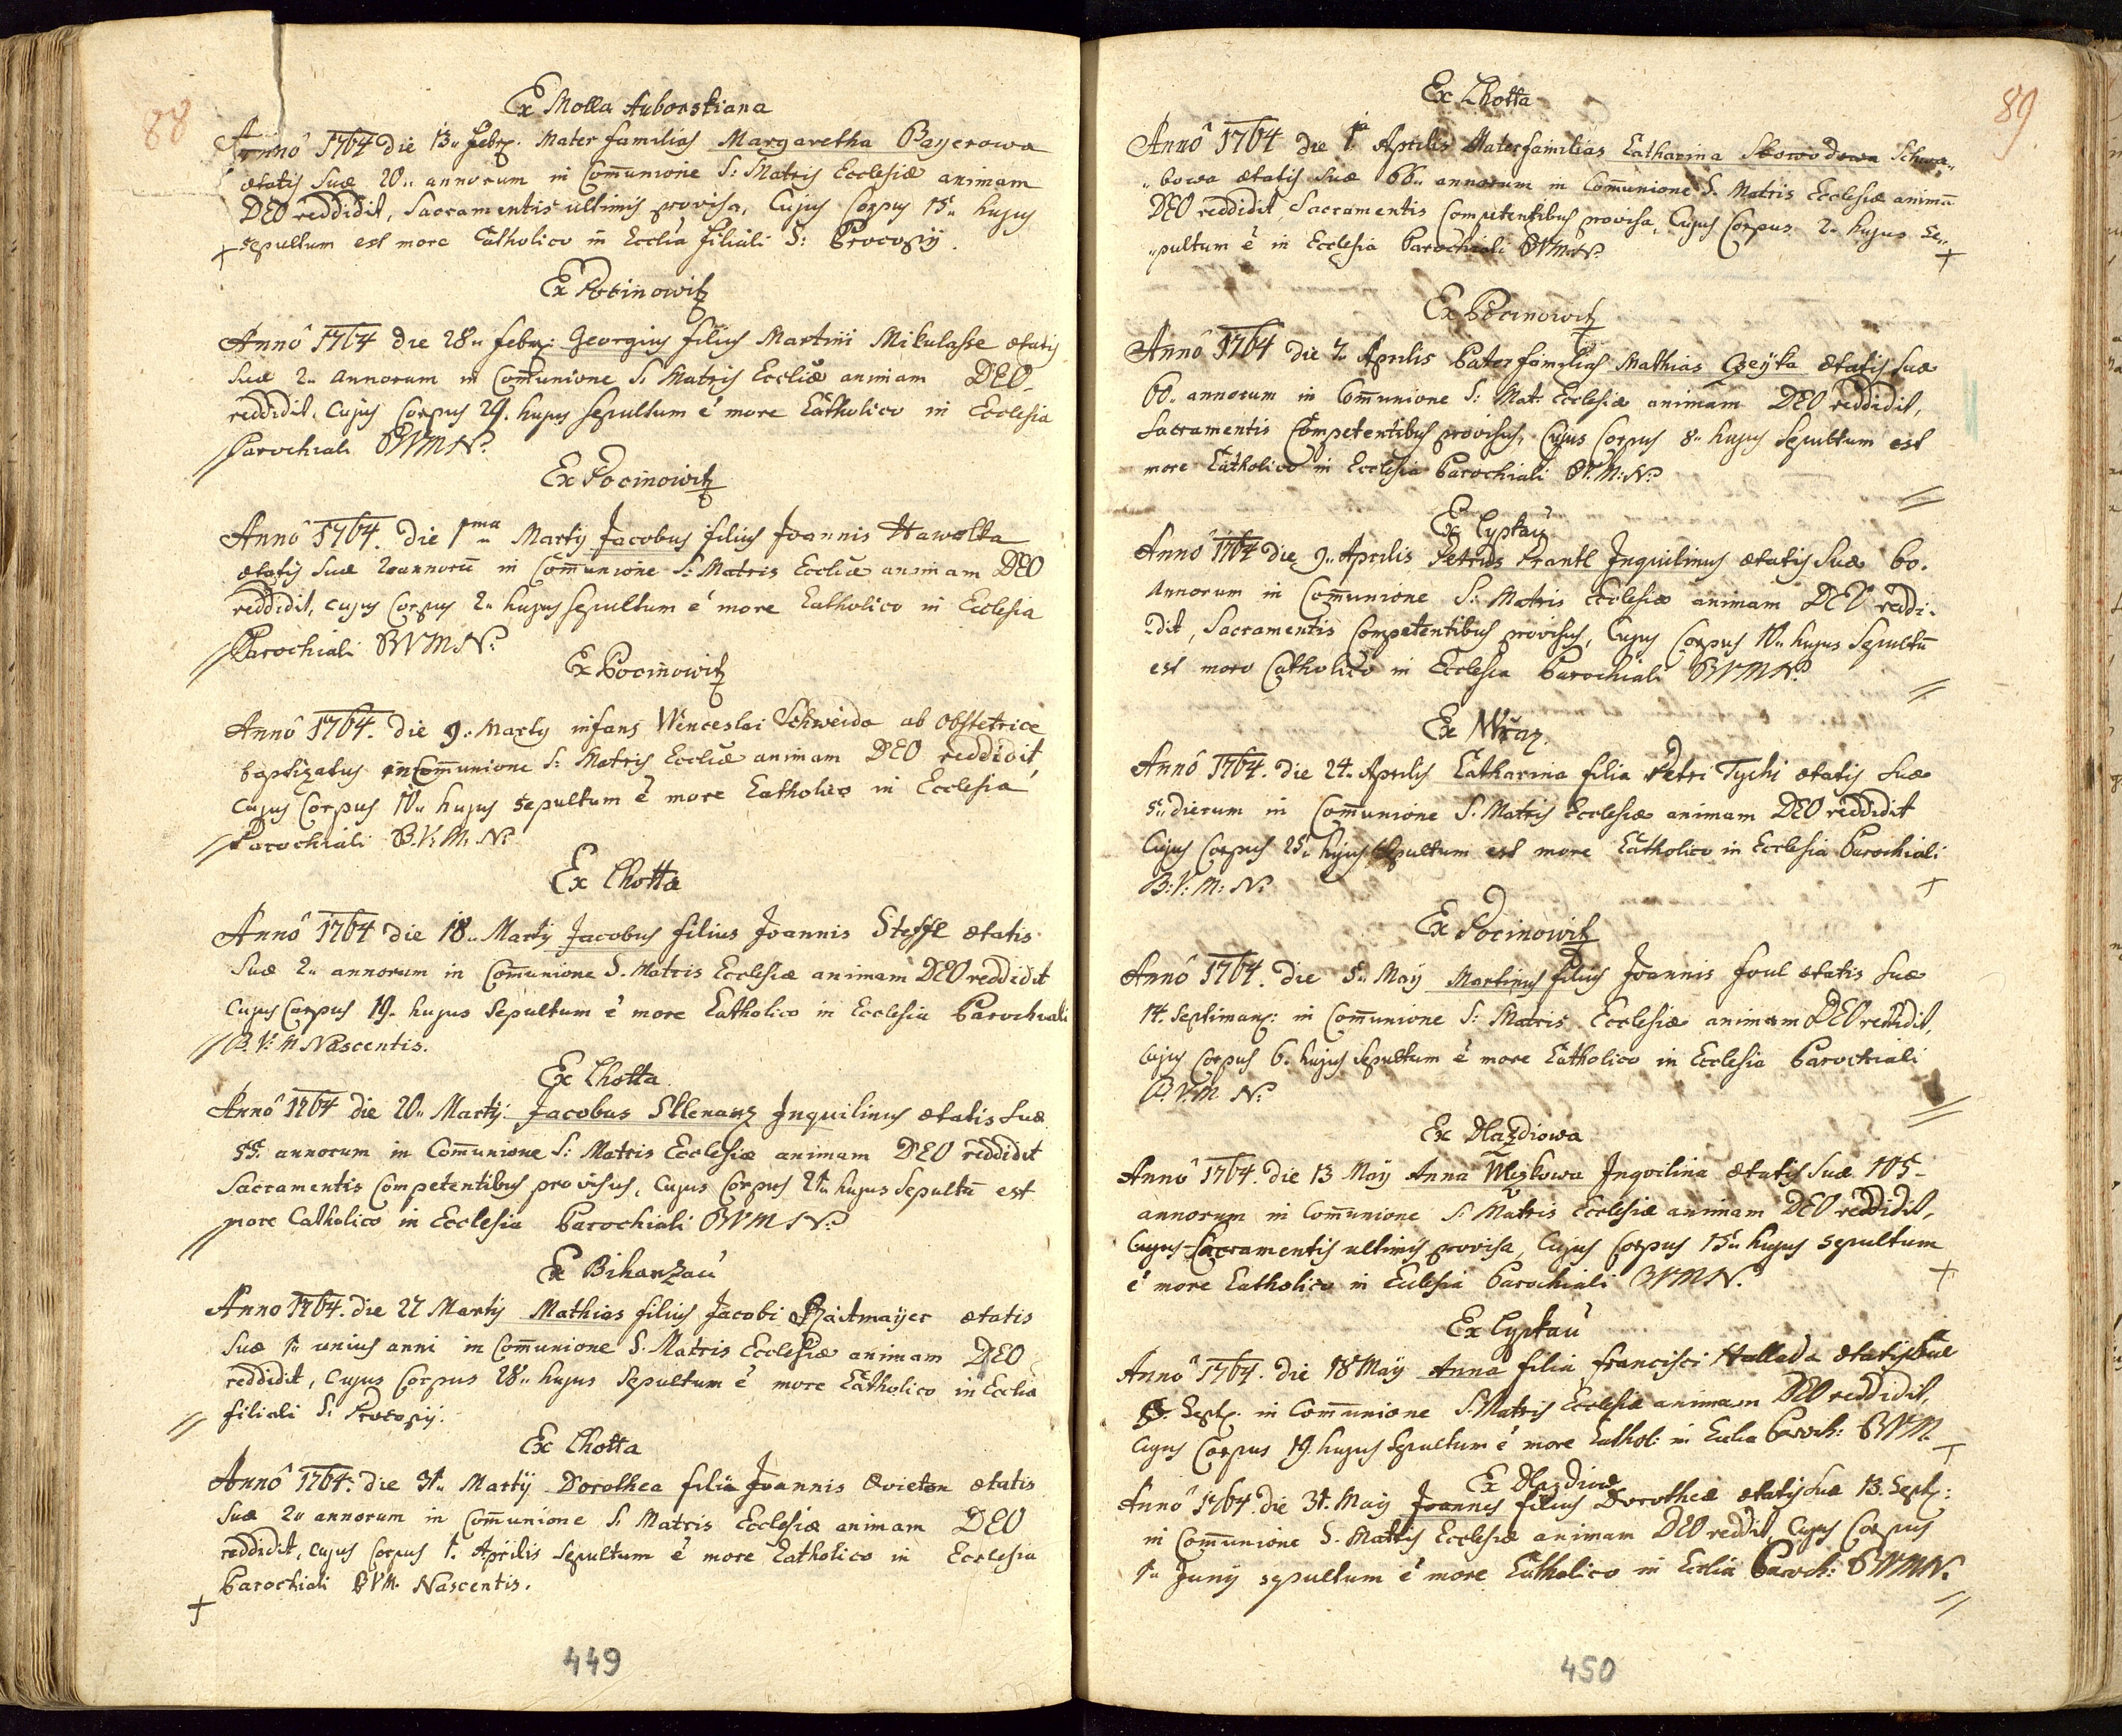 88
Ex Molla Auborskiana
Anno 1764 die 13. Febr. Mater familias Margaretha Bayerowa
ætatis suæ 20.. annorum in Com̄unione S: Matris Ecclesiæ animam
DEO reddidit, Sacramentis ultimis provisa, Cujus Corpus 15.. hujus
+ sepultum est more Catholico in Ecclia filiali S: Procopij.
Ex Pocinowitz
Annô 1764 die 28.. febr: Georgius filius Martini Mikulasse ætatis
suæ 2.. Annorum in Com̄unione S: Matris Eccliæ animam DEO
reddidit, Cujus Corpus 29. hujus sepultum é more Catholico in Ecclesia
// Parochiali BVMN.
Ex Pocinowitz
Annô 1764. die 1ma Martij Jacobus filius Joannis Hawolka
ætatis suæ 2 annorū in Com̄unione S: Matris Eccliæ animam DEO
reddidit, cujus Corpus 2.. hujus sepultum é more Catholico in Ecclesia
// Parochiali BVMN.
Ex Pocinowitz
Annô 1764. die 9.. Martij infans Wenceslai Schweida ab obstetrice
baptizatus in Com̄unione S: Matris Eccliæ animam DEO reddidit,
Cujus Corpus 10.. hujus sepultum é more Catholico in Ecclesia
// Parochiali B.V.M.N.
Ex Lhotta
Annô 1764 die 18.. Martij Jacobus filius Joannis Steffl ætatis
suæ 2.. annorum in Com̄unione S. Matris Ecclesiæ animam DEO reddidit
Cujus Corpus 19. hujus sepultum é more Catholico in Ecclesia Parochiali
// B.V.M Nascentis.
Ex Lhotta
Annô 1764 die 20.. Martij Jacobus Sklenarz Inquilinus ætatis suæ
55. annorum in Com̄unione S: Matris Ecclesiæ animam DEO reddidit
Sacramentis Competentibus provisus, Cujus Corpus 21.. hujus Sepultū est
// more Catholico in Ecclesia Parochiali BVMN.
Ex Biharzau
Anno 1764. die 27 Martij Mathias filius Jacobi mayer ætatis
suæ 1.. unius anni in Com̄unione S. Matris Ecclesiæ animam DEO
reddidit, Cujus Corpus 28.. hujus Sepultum é more Catholico in Ecclia
// filiali S: Procopij.
Ex Lhotta
Annô 1764. die 31.. Martij Dorothea filia Joannis Qvieton ætatis
suæ 2.. annorum in Com̄unione S. Matris Ecclesiæ animam DEO
reddidit, cujus Corpus 1. Aprilis sepultum é more Catholico in Ecclesia
+ Parochiali BVM. Nascentis.
449
89
Ex Lhotta
Annô 1764 die 1a Aprilis Materfamilias Catharina Skowodowa Schwa,,
,,bowa ætatis suæ 66.. annorum in Com̄unione S. Matris Ecclesiæ animā
DEO reddidit, Sacramentis Competentibus provisa, Cujus Corpus 2.. hujus se,,
,,pultum é in Ecclesia Parochiali BVMN. +
Ex Pocinowitz
Annô 1764 die 7.. Aprilis Pater familias Mathias Czeyka ætatis suæ
60.. annorum in Com̄unione S: Mat: Ecclesiæ animam DEO reddidit,
Sacramentis Competentibus provisus, Cujus Corpus 8.. hujus sepultum est
more Catholico in Ecclesia Parochiali BV.M:N. //
Ex Lyptau
Annô 1764 die 9.. Aprilis Petrus Frantl Inquilinus ætatis suæ 60.
Annorum in Com̄unione S: Matris Ecclesiæ animam DEO reddi-
dit, Sacramentis Competentibus provisus, Cujus Corpus 10.. hujus Sepultū
est more Catholico in Ecclesia Parochiali BVMN. //
Ex Wraz.
Annô 1764. die 24.. Aprilis Catharina filia Petri Tychi ætatis suæ
5.. dierum in Com̄unione S. Matris Ecclesiæ animam DEO reddidit
Cujus Corpus 25. hujus sepultum est more Catholico in Ecclesia Parochiali
B:V:M:N. +
Ex Pocinowitz
Annô 1764. die 5.. May Martinus filius Joannis Foul ætatis suæ
14. septiman: in Com̄unione S: Matris Ecclesiæ animam DEO reddidit,
Cujus Corpus 6. hujus sepultum é more Catholico in Ecclesia Parochiali
B.V.M N. //
Ex Hlazdiowa
Annô 1764. die 13 Maij Anna Inqvilina ætatis suæ 105-
annorum in Com̄unione S: Matris Ecclesiæ animam DEO reddidit,
Cujus Sacramentis ultimis provisa, Cujus Corpus 15.. hujus sepultum
é more Catholico in Eclesia Parochiali BVMN. +
Ex Lyptau
Annô 1764. die 18 Maij Anna filia Francisci Hallada ætatis suæ
Sept. in Com̄unione S: Matris Ecclesiæ animam DEO reddidit,
Cujus Corpus 19. hujus sepultum é more Cathol: in Eclia Paroch: BVM. +
Ex Hlazdiowa
Annô 1764. die 31. Maij Joannes filius Dorotheæ ætatis suæ 13. Sept:
in Com̄unione S. Matris Ecclesiæ animam DEO reddit, Cujus Corpus
1.. Junij sepultum é more Catholico in Ecclia Paroch: BVMN. //
450